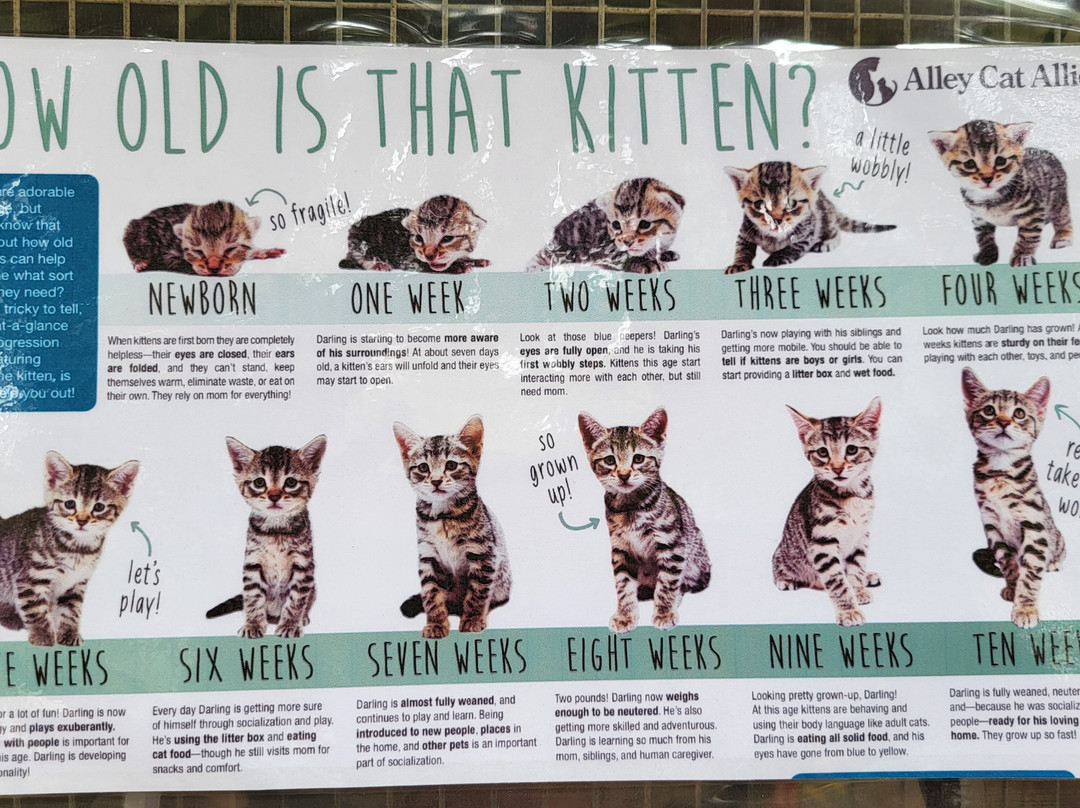 OW OLD IS THAT KITTEN?
Alley Cat Alli
re adorable
but
know that
out how old
s can help
e what sort
hey need?
tricky to tell,
at-a-glance
ogression
turing
e kitten, is
you out!
so fragile!
a little
wobbly!
NEWBORN
ONE WEEK
TWO WEEKS
THREE WEEKS
FOUR WEEKS
When kittens are first born they are completely
helpless—their eyes are closed, their ears
are folded, and they can't stand, keep
themselves warm, eliminate waste, or eat on
their own. They rely on mom for everything!
Darling is starting to become more aware
of his surroundings! At about seven days
old, a kitten's ears will unfold and their eyes
may start to open.
Look at those blue peepers! Darling's
eyes are fully open, and he is taking his
first wobbly steps. Kittens this age start
interacting more with each other, but still
need mom.
Darling's now playing with his siblings and
getting more mobile. You should be able to
tell if kittens are boys or girls. You can
start providing a litter box and wet food.
Look how much Darling has grown!
weeks kittens are sturdy on their fe
playing with each other, toys, and pe
let's
play!
so
grown
up!
re
take
wo
E WEEKS
SIX WEEKS
SEVEN WEEKS
EIGHT WEEKS
NINE WEEKS
TEN WEE
or a lot of fun! Darling is now
y and plays exuberantly.
with people is important for
is age. Darling is developing
onality!
Every day Darling is getting more sure
of himself through socialization and play.
He's using the litter box and eating
cat food—though he still visits mom for
snacks and comfort.
Darling is almost fully weaned, and
continues to play and learn. Being
introduced to new people, places in
the home, and other pets is an important
part of socialization.
Two pounds! Darling now weighs
enough to be neutered. He's also
getting more skilled and adventurous.
Darling is learning so much from his
mom, siblings, and human caregiver.
Looking pretty grown-up, Darling!
At this age kittens are behaving and
using their body language like adult cats.
Darling is eating all solid food, and his
eyes have gone from blue to yellow.
Darling is fully weaned, neuter
and—because he was socializ
people—ready for his loving
home. They grow up so fast!